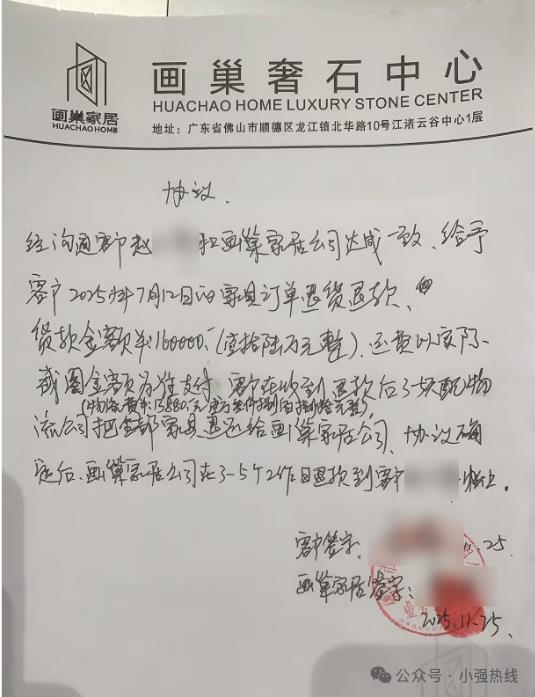 画巢家居
HUACHAO HOME
画巢奢石中心
HUACHAO HOME LUXURY STONE CENTER
地址：广东省佛山市顺德区龙江镇北华路10号江渚云谷中心1层
协议.
经沟通客户赵 和画巢家居公司达成一致、给予
客户2025年7月12日的家具订单退货退款、
货款金额¥:160000,(壹拾陆万元整).运费以实际
截图金额为准支付. 客户在收到退款后 配物
(物流费¥:13880元
流公司把全部家具退还给画巢家居公司、协议确
定后、画巢家居公司在3-5个工作日退款到客户 账上.
客户签字: 25
画巢家居签字:
2025.11.25、
公众号·小强热线